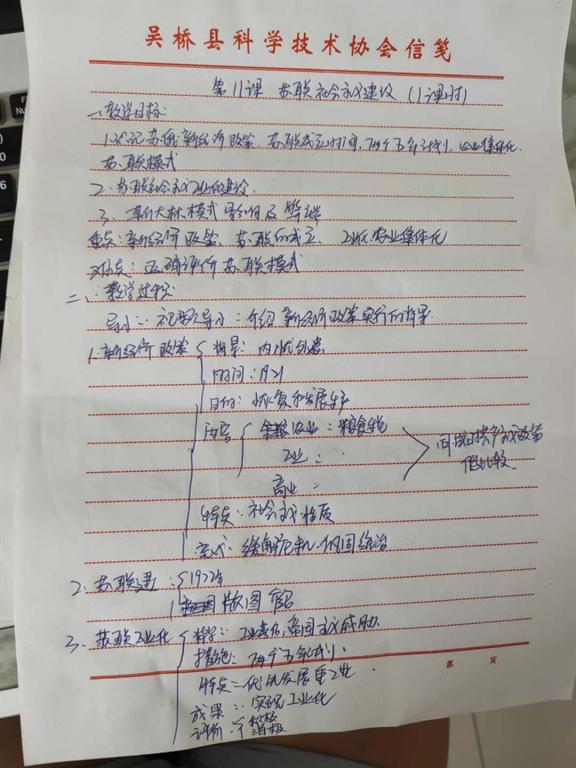 吴桥县科学技术协会信笺
第11课 苏联社会主义建设 (1课时)
一、教学目标:
1.识记苏俄新经济政策、苏联成立时间、两个五年计划、农业集体化、
苏联模式
2.苏联社会主义工业化建设
3、斯大林模式影响及弊端
重点:新经济政策、苏联的成立、工业化农业集体化
难点:正确评价苏联模式
二、教学过程
导入:视频导入:介绍新经济政策实行的背景
1.新经济政策 背景:内忧外患
时间:1921
目的:恢复和发展生产
内容 农业:粮食税
工业:
商业:
同战时共产主义政策
做比较
特点:社会主义性质
意义:缓解危机、巩固统治
2、苏联建 1922年
版图 介绍
3、苏联工业化 背景:工业责任,帝国主义威胁
措施:两个五年计划
特点:优先发展重工业
成果:实现工业化
评价: 积极
消极
第 页